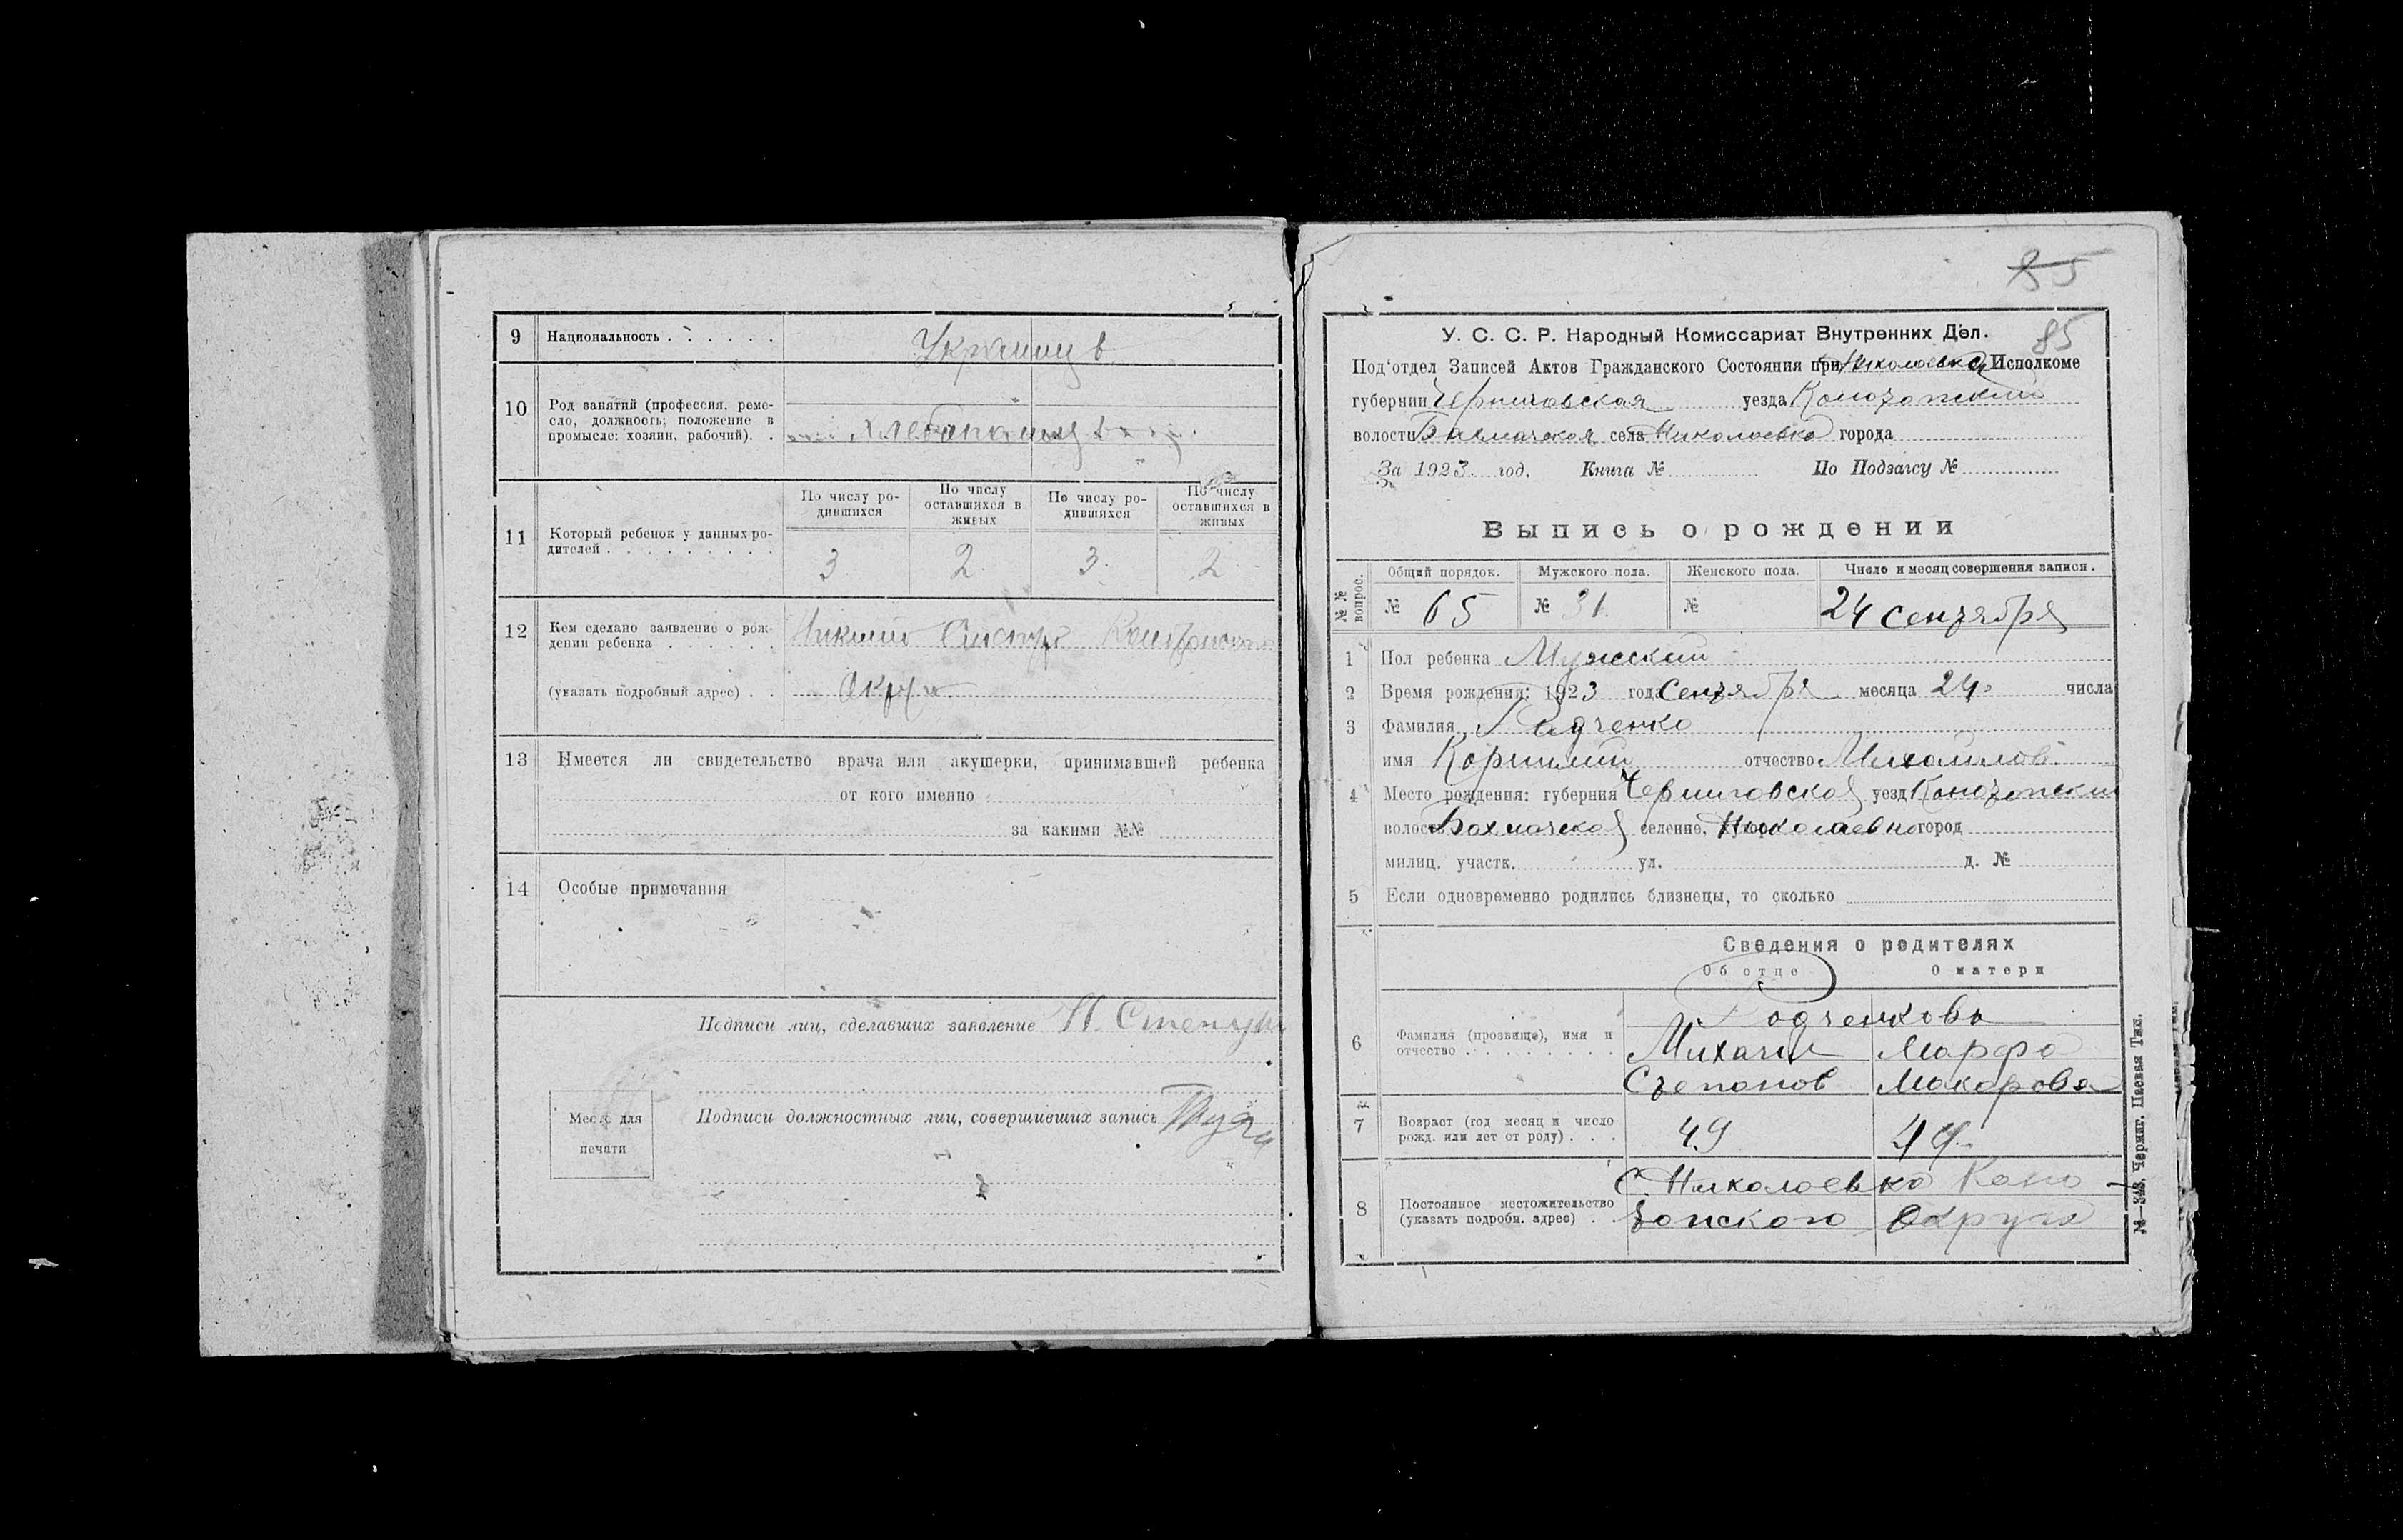 9 Национальность . . . . . .
Украинцъ
10 Род занятий (профессия, реме-
сло, должность; положение в
промысле: хозяин, рабочий). .
хлебопашец
11 Который ребенок у данных ро-
дителей . . . . . . . . .
По числу ро-
дившихся
По числу
оставшихся в
живых
По числу ро-
дившихся
По числу
оставшихся в
живых
3 2 3 2
12 Кем сделано заявление о рож-
дении ребенка . . . . . .
(указать подробный адрес) . .
13 Имеется ли свидетельство врача или акушерки, принимавшей ребенка
от кого именно
за какими №№
14 Особые примечания
Подписи лиц, сделавших заявление
Место для
печати
Подписи должностных лиц, совершивших запись
85
85
У. С. С. Р. Народный Комиссариат Внутренних Дел.
Под'отдел Записей Актов Гражданского Состояния при Николаевка Исполкоме
губернии Черниговская уезда Конотопский
волости Бахмачская села Николаевка города
За 1923 год. Книга № По Подзагсу №
Выпись о рождении
№ № вопрос.
Общий порядок. Мужского пола. Женского пола. Число и месяц совершения записи.
№ 65 № 31 № 24 сентября
1 Пол ребенка Мужский
2 Время рождения: 1923 года Сентября месяца 24 числа
3 Фамилия Радченко
имя Корнилий отчество Михайлов
4 Место рождения: губерния Черниговской уезд Конотопский
волость Бахмачской селение, Николаевка город
милиц. участк. ул. д. №
5 Если одновременно родились близнецы, то сколько
Сведения о родителях
Об отце О матери
6 Фамилия (прозвище), имя и
отчество . . . . . . . . .
Радченковы
Михаил Марфа
Степанов Макарова
7 Возраст (год месяц и число
рожд. или лет от роду) . . .
49
8 Постоянное местожительство
(указать подробн. адрес) . .
С. Николаевка Коно-
топского Округа
№—343. Черниг. Паевая Тип.